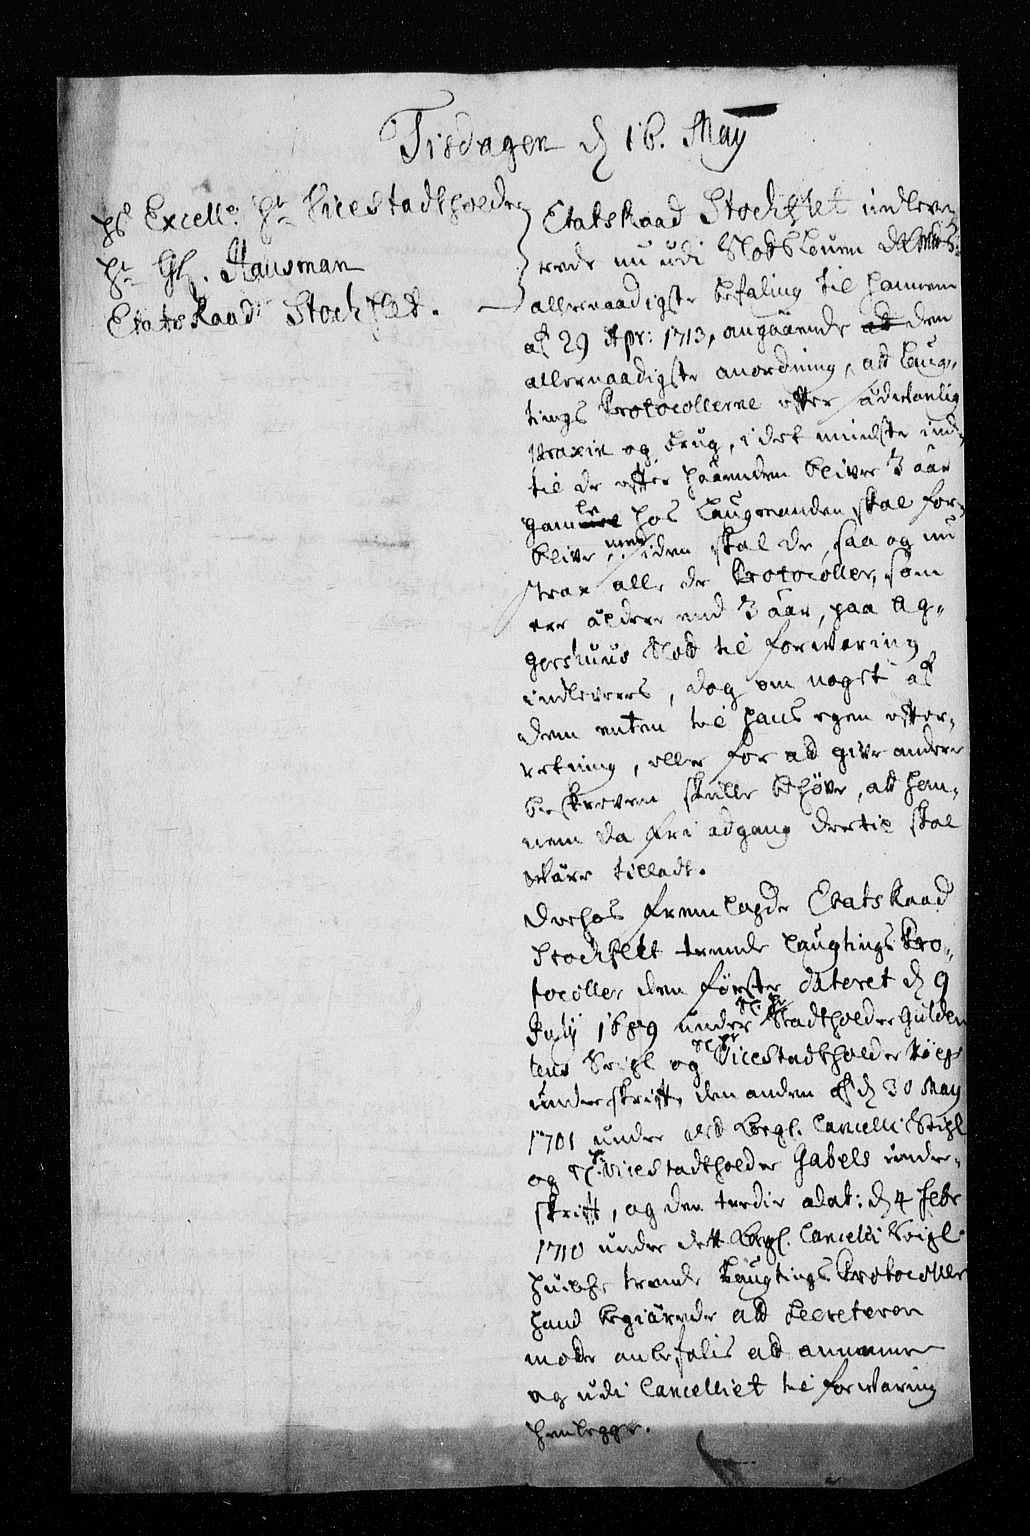 Tisdagen d 16. May
hs Excell: Hr Vicestadtholder
Hr GL. Hausman
Etatz Raad Stochflet.
EtatsRaad Stochflet indleve-
rede nu udi Slotz Louen
allernaadigste befaling til hannem
af 29 Apr: 1713, angaaende den
allernaadigste anordning, att Laug-
tings Protocollerne efter sædvanlig
praxin og brug, i det mindste ind-
til de efter haanden bliver 3 aar
gamle hos Laugmanden skal for-
blive, men siden skal de, saa og nu
strax alle de Protocoller, som
ere ældere end 3 aar, paa Ag-
gershuus Slott til forvaring
indleveres, dog om nogit af
dem enten til hans egen efter-
retning, eller for att give andere
beskreven skulle behøve, att han-
nem da fri adgang dertil skal
være tilladt.
Derhos fremlagde EtatsRaad
Stochflet trende Laugtings Pro-
tocoller den første dateret d 9
July 1689 under Sl. Hr Stadtholder Gülden
leus Seigl og Sl. Hr Vicestadtholder Höegs
underskrift, den anden af d 30 May
1701 under det Kongl. Cancelli Seigl
og Hr. Vicestadtholder Gabels under-
skrift, og den tredie dat: d 4 Febr
1710 under dett Kongl. Cancelli Seigl
huilche trende Laugtings Protocoller
hand begiærede att Secreteren
motte anbefalis att annamme
og udi Cancelliet til forvaring
henlegge.